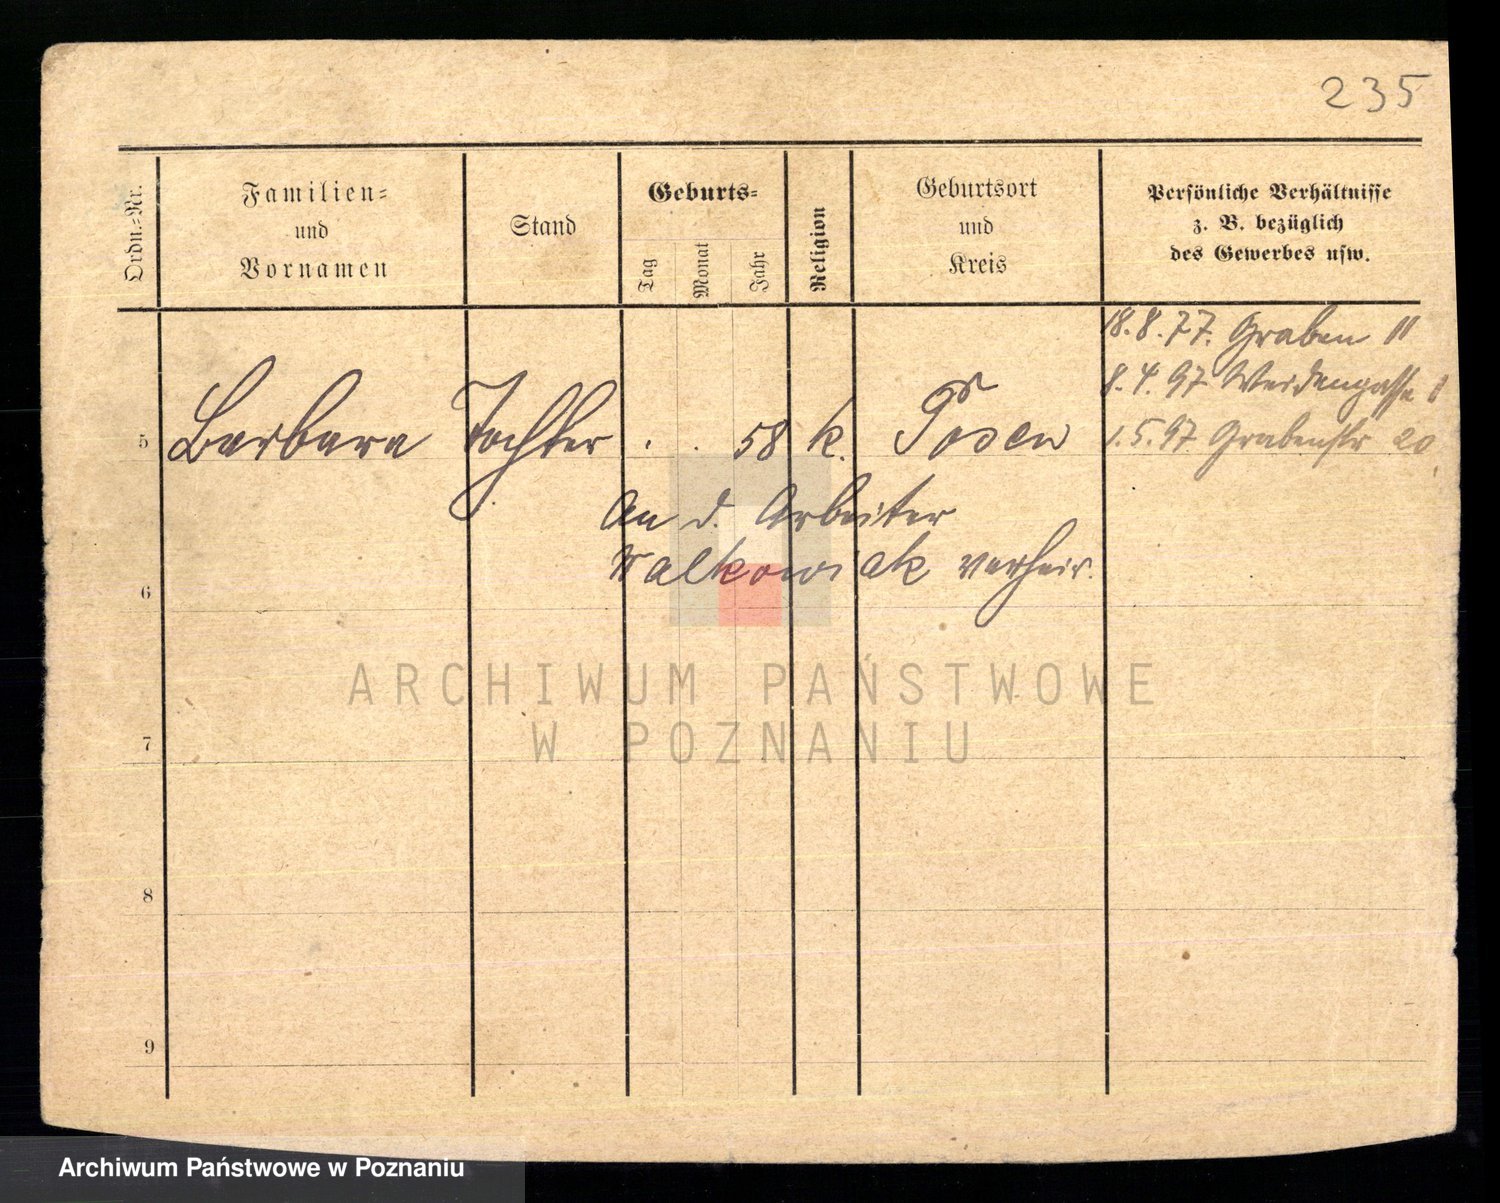 235
Ordn.-Nr.
Familien-
und
Vornamen
Stand
Geburts-
Tag
Monat
Jahr
Religion
Geburtsort
und
Kreis
Persönliche Verhältnisse
z. B. bezüglich
des Gewerbes usw.
18.8.77. Graben 11
8.4.97 Weidengasse
5 Barbara Tochter . . 58 k. Posen 1.5.97 Grabenstr 20
An d. Arbeiter
Walkowiak verheir.
6
7
8
9
ARCHIWUM PAŃSTWOWE
W POZNANIU
Archiwum Państwowe w Poznaniu